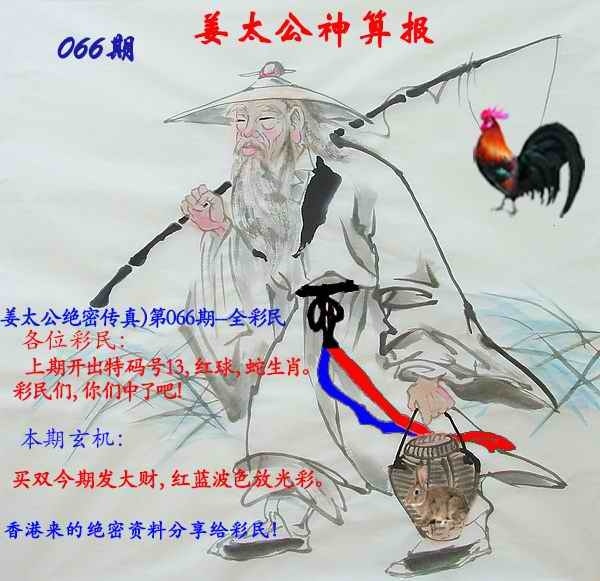 姜太公神算报
066期
姜太公绝密传真)第066期--全彩民
各位彩民:
上期开出特码号13,红球,蛇生肖。
彩民们,你们中了吧!
本期玄机:
买双今期发大财,红蓝波色放光彩。
香港来的绝密资料分享给彩民!